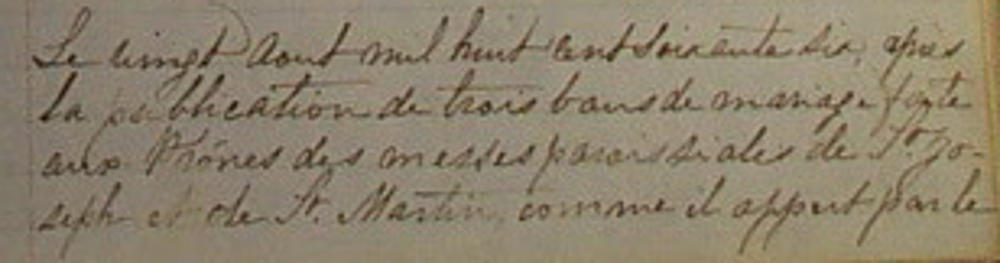 Le vingt Aout mil huit cent soixante six, après
la publication de trois bans de mariage faite
aux Prônes des messes paroissiales de St. Jo-
seph et de St. Martin, comme il appert par le